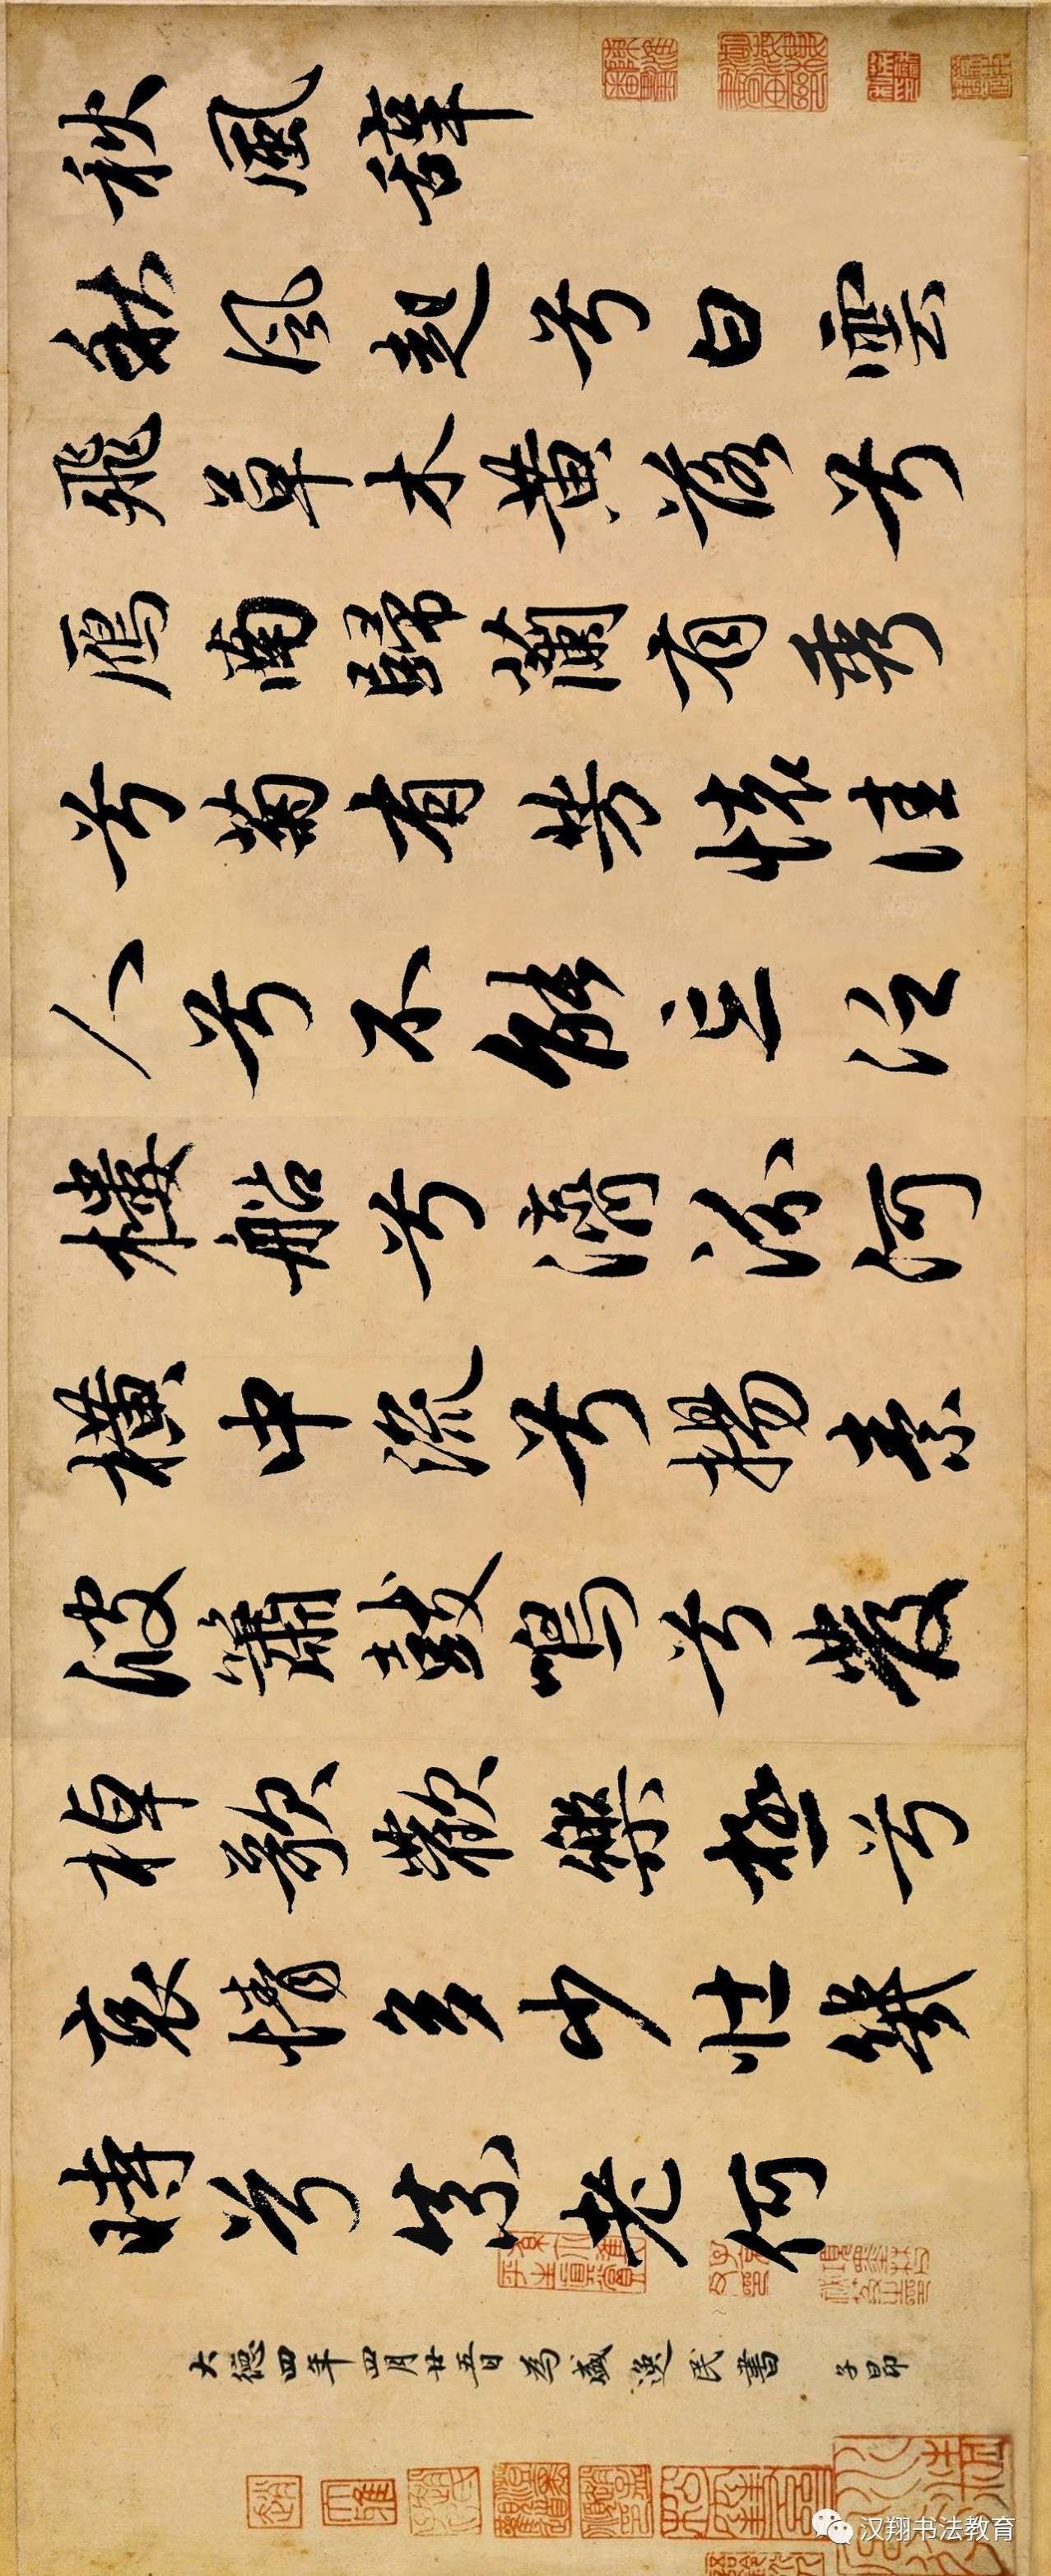 秋風辭
秋風起兮白雲
飛草木黃落兮
鴈南歸蘭有秀
兮菊有芳懷佳
人兮不能忘汎
樓船兮濟汾河
橫中流兮揚素
波簫鼓鳴兮發
棹歌歡樂極兮
哀情多少壯幾
時兮奈老何
大德四年四月廿五日為盛逸民書 子昂
汉翔书法教育